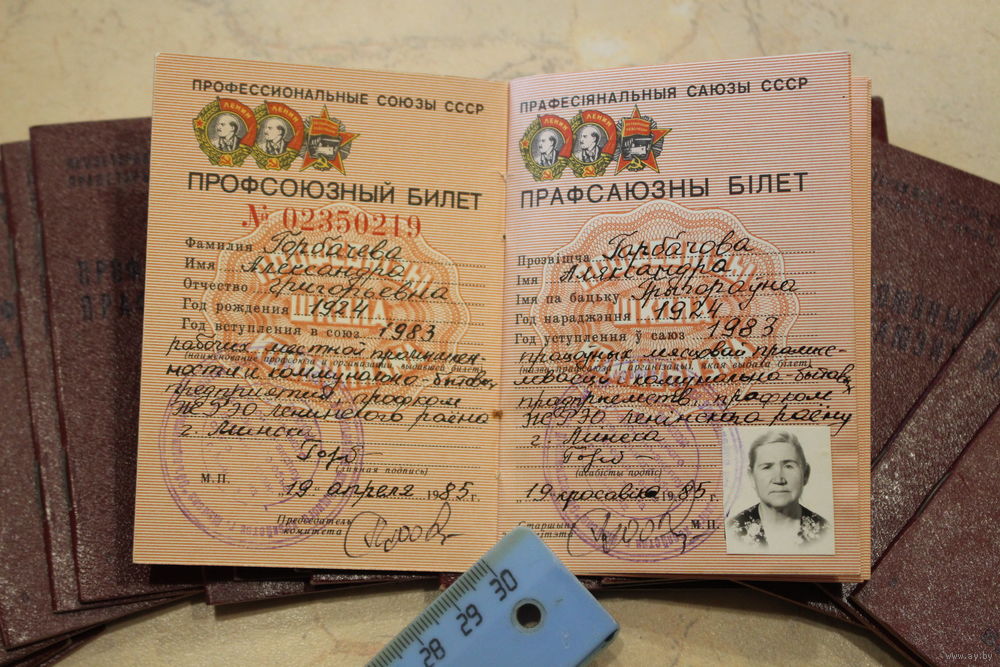 ПРОФЕССИОНАЛЬНЫЕ СОЮЗЫ СССР
ЛЕНИН
ЛЕНИН
ПРОФСОЮЗНЫЙ БИЛЕТ
№ 02350219
Фамилия Горбачева
Имя Александра
Отчество Григорьевна
Год рождения 1924
Год вступления в союз 1983
рабочих местной промышлен-
(наименование профсоюза и организации, выдавшей билет)
ности и коммунально-бытовых
предприятий, профком
ЖРЭО Ленинского района
г. Минска
Горб-
(личная подпись)
М.П.
"19" апреля 1985 г.
Председатель
комитета
ПРАФЕСІЯНАЛЬНЫЯ САЮЗЫ СССР
ЛЕНИН
ЛЕНИН
ПРАФСАЮЗНЫ БІЛЕТ
Прозвішча Гарбачова
Імя Аляксандра
Імя па бацьку Рыгораўна
Год нараджэння 1924
Год уступлення ў саюз 1983
працоўных мясцовай прамыс-
(назва прафсаюза і арганізацыі, якая выдала білет)
ловасці камунальна-бытавых
прадпрыемств, прафком
ЖРЭО Ленинского раёну
г. Минска
Горб-
(асабісты подпіс)
"19" красавіка 1985 г.
Старшыня
камітэта
М.П.
28 29 30
www.ay.by